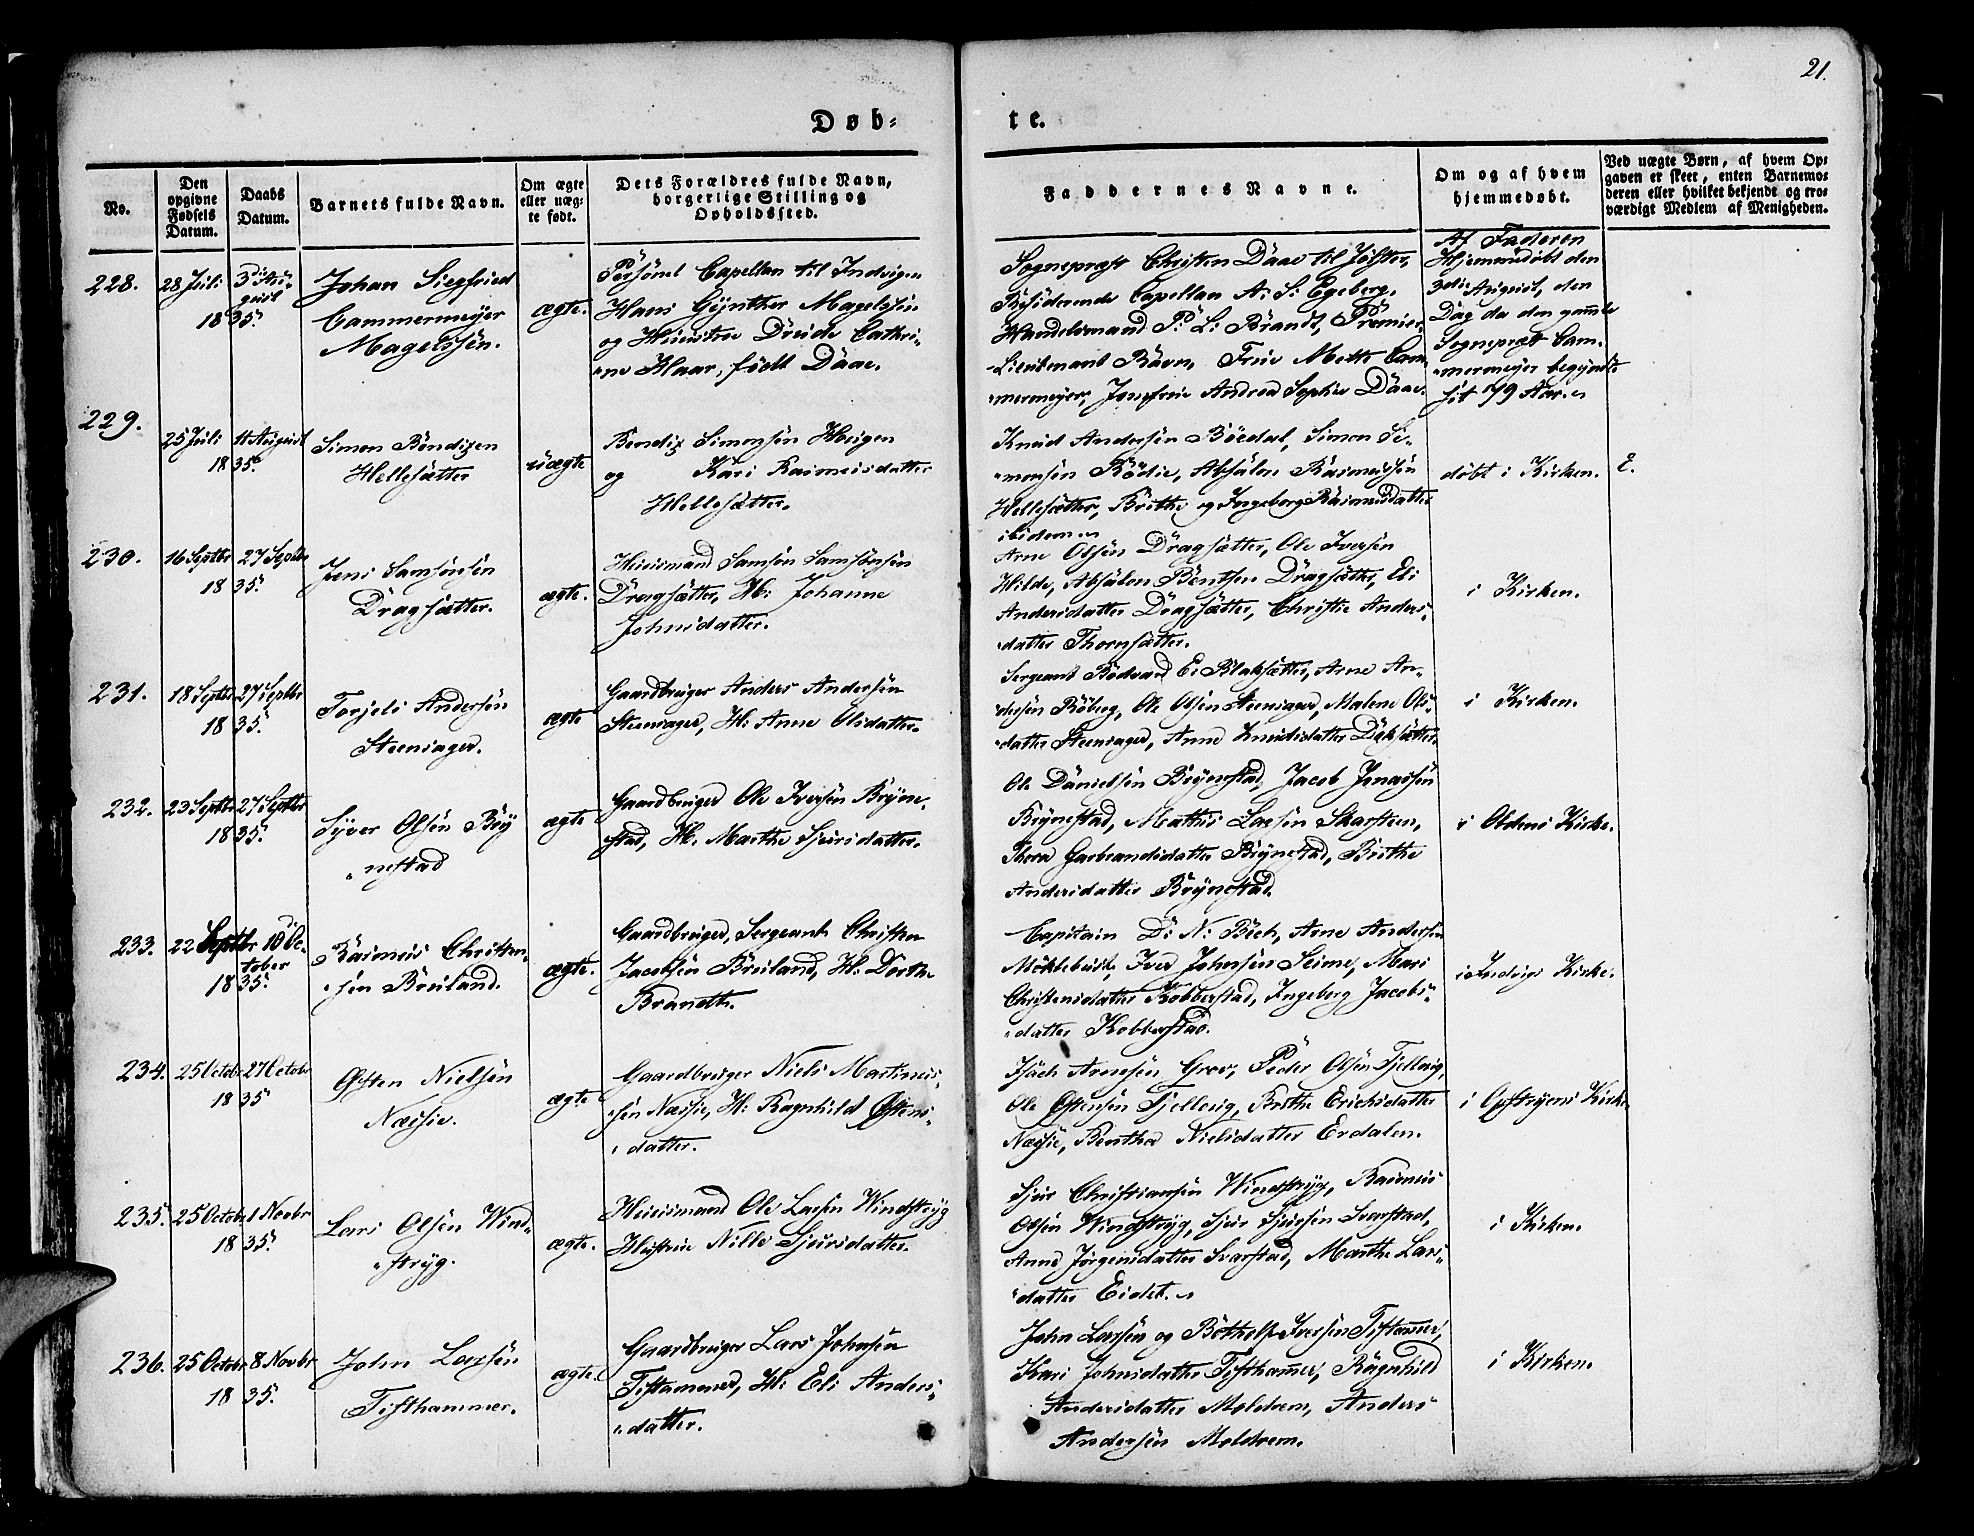 21.
Døb-
te.
No.
Den opgivne Fødsels Datum.
Daabs Datum.
Barnets fulde Navn.
Om ægte eller uæg- te født.
Dets Forældres fulde Navn, borgerlige Stilling og Opholdssted.
Faddernes Navne.
Om og af hvem hjemmedøbt.
Ved uægte Børn, af hvem Op- gaven er skeet, enten Barnemo- deren eller hvilket bekjendt og tro- værdigt Medlem af Menigheden.
228.
28 Juli
3die Au-
gust
1835.
Johan Siegfried
Cammermeyer
Magelssøn.
ægte.
Personel Capellan til Indvigen
Hans Gynther Magelssøn
og Huustroe Drude Cathri-
ne Klaar, født Daae.
Sognepræst Christen Daae til Jølster,
Residerende Capellan A. S. Egeberg,
Handelsmand P. L. Brandt, Premier
Lieutenant Ravn, Frue Mette Cam
mermeyer, Jomfrue Andrea Sophie Daae.
Af Faderen
Hjemmedøbt den
3die August, den
Dag da den gamle
Sognepræst Cam-
mermeyer begyndte
sit 79 Aar.
229.
25 Juli
11 August
1835.
Simon Bendixen
Hellesætter
uægte
Bendix Simonsen Haugen
og Kari Rasmusdatter
Hellesætter.
Knud Andersen Bøedal, Simon Si-
monsen Rødie, Absalon Rasmussen
Hellesætter, Brithe og Ingeborg Rasmusdatter
ibidem.
døbt i Kirken.
230.
16 Septbr
27 Septbr
1835.
Jens Samsonsen
Dragsætter.
ægte.
Huusmand Samson Samsonsen
Dragsætter, H: Johanne
Johnsdatter.
Arne Olsen Dragsætter, Ole Iversen
Hilde, Absalon Bentsen Dragsætter, Eli
Andersdatter Dragsætter, Christie Anders-
datter Thornsætter.
i Kirken.
231.
18 Septbr
27 Septbr
1835.
Torjels Andersen
Steensager.
ægte
Gaardbruger Anders Andersen
Steensager, H: Anne Olsdatter.
Sergeant Bødvard E. Blaksætter, Arne An-
dersen Røberg, Ole Olsen Steensager, Malene Ols-
datter Steensager, Anne Knudsdatter
i Kirken.
232.
23 Septbr
27 Septbr
1835.
Syver Olsen Bry
nestad
ægte
Gaardbruger Ole Iversen Bryne-
stad, H. Marthe Sjursdatter.
Ole Danielsen Brynestad, Jacob Jonassen
Brynestad, Mathis Larsen Skarsteen,
Thora Garbrandsdatter Brynestad, Brithe
Andersdatter Brynestad.
i Oldens Kirke.
233.
22 Septbr
10de Oc-
tober
1835.
Rasmus Christen-
sen Breiland.
ægte.
Gaardbruger, Sergeant Christen
Jacobsen Breiland, H: Dorthe
Brandth.
Capitain D. N. Bech, Arne Andersen
Møklebust, Iver Johnsen Seime, Mari
Christensdatter Kobberstad, Ingeborg Jacobs-
datter Kobberstad.
i Indvigs Kirke.
234.
25 Octobr
27 Octobr
1835
Østen Nielsen
Næssie.
ægte
Gaardbruger Niels Martinus-
sen Næssie, H: Ragnhild Østens-
datter.
Isach Arnesen Grov, Peder Olsen Tjellaug,
Ole Østensen Tjellaug, Brithe Erichsdatter
Næssie, Benthe Nielsdatter Erdalen.
i Opstryens Kirke.
235.
25 Octobr
1 Novbr
1835.
Lars Olsen Wind-
stryg.
ægte.
Huusmand Ole Larsen Windstryg
Hustrue Nille Sjursdatter.
Sjur Christiansen Windstryg, Rasmus
Olsen Windstryg, Sjur Sjursen Svarstad,
Anne Jørgensdatter Svarstad, Marthe Lars-
datter Eidet.
i Kirken.
236.
25 Octobr
8 Novbr
1835.
John Larsen
Tisthammer.
ægte.
Gaardbruger Lars Johnsen
Tistammer, H: Eli Anders-
datter.
John Larsen og Botholf Iversen Tistamer,
Kari Johnsdatter Tisthamer, Ragnhild
Andersdatter Moldrem, Anders
Andersen Moldrem.
i Kirken.